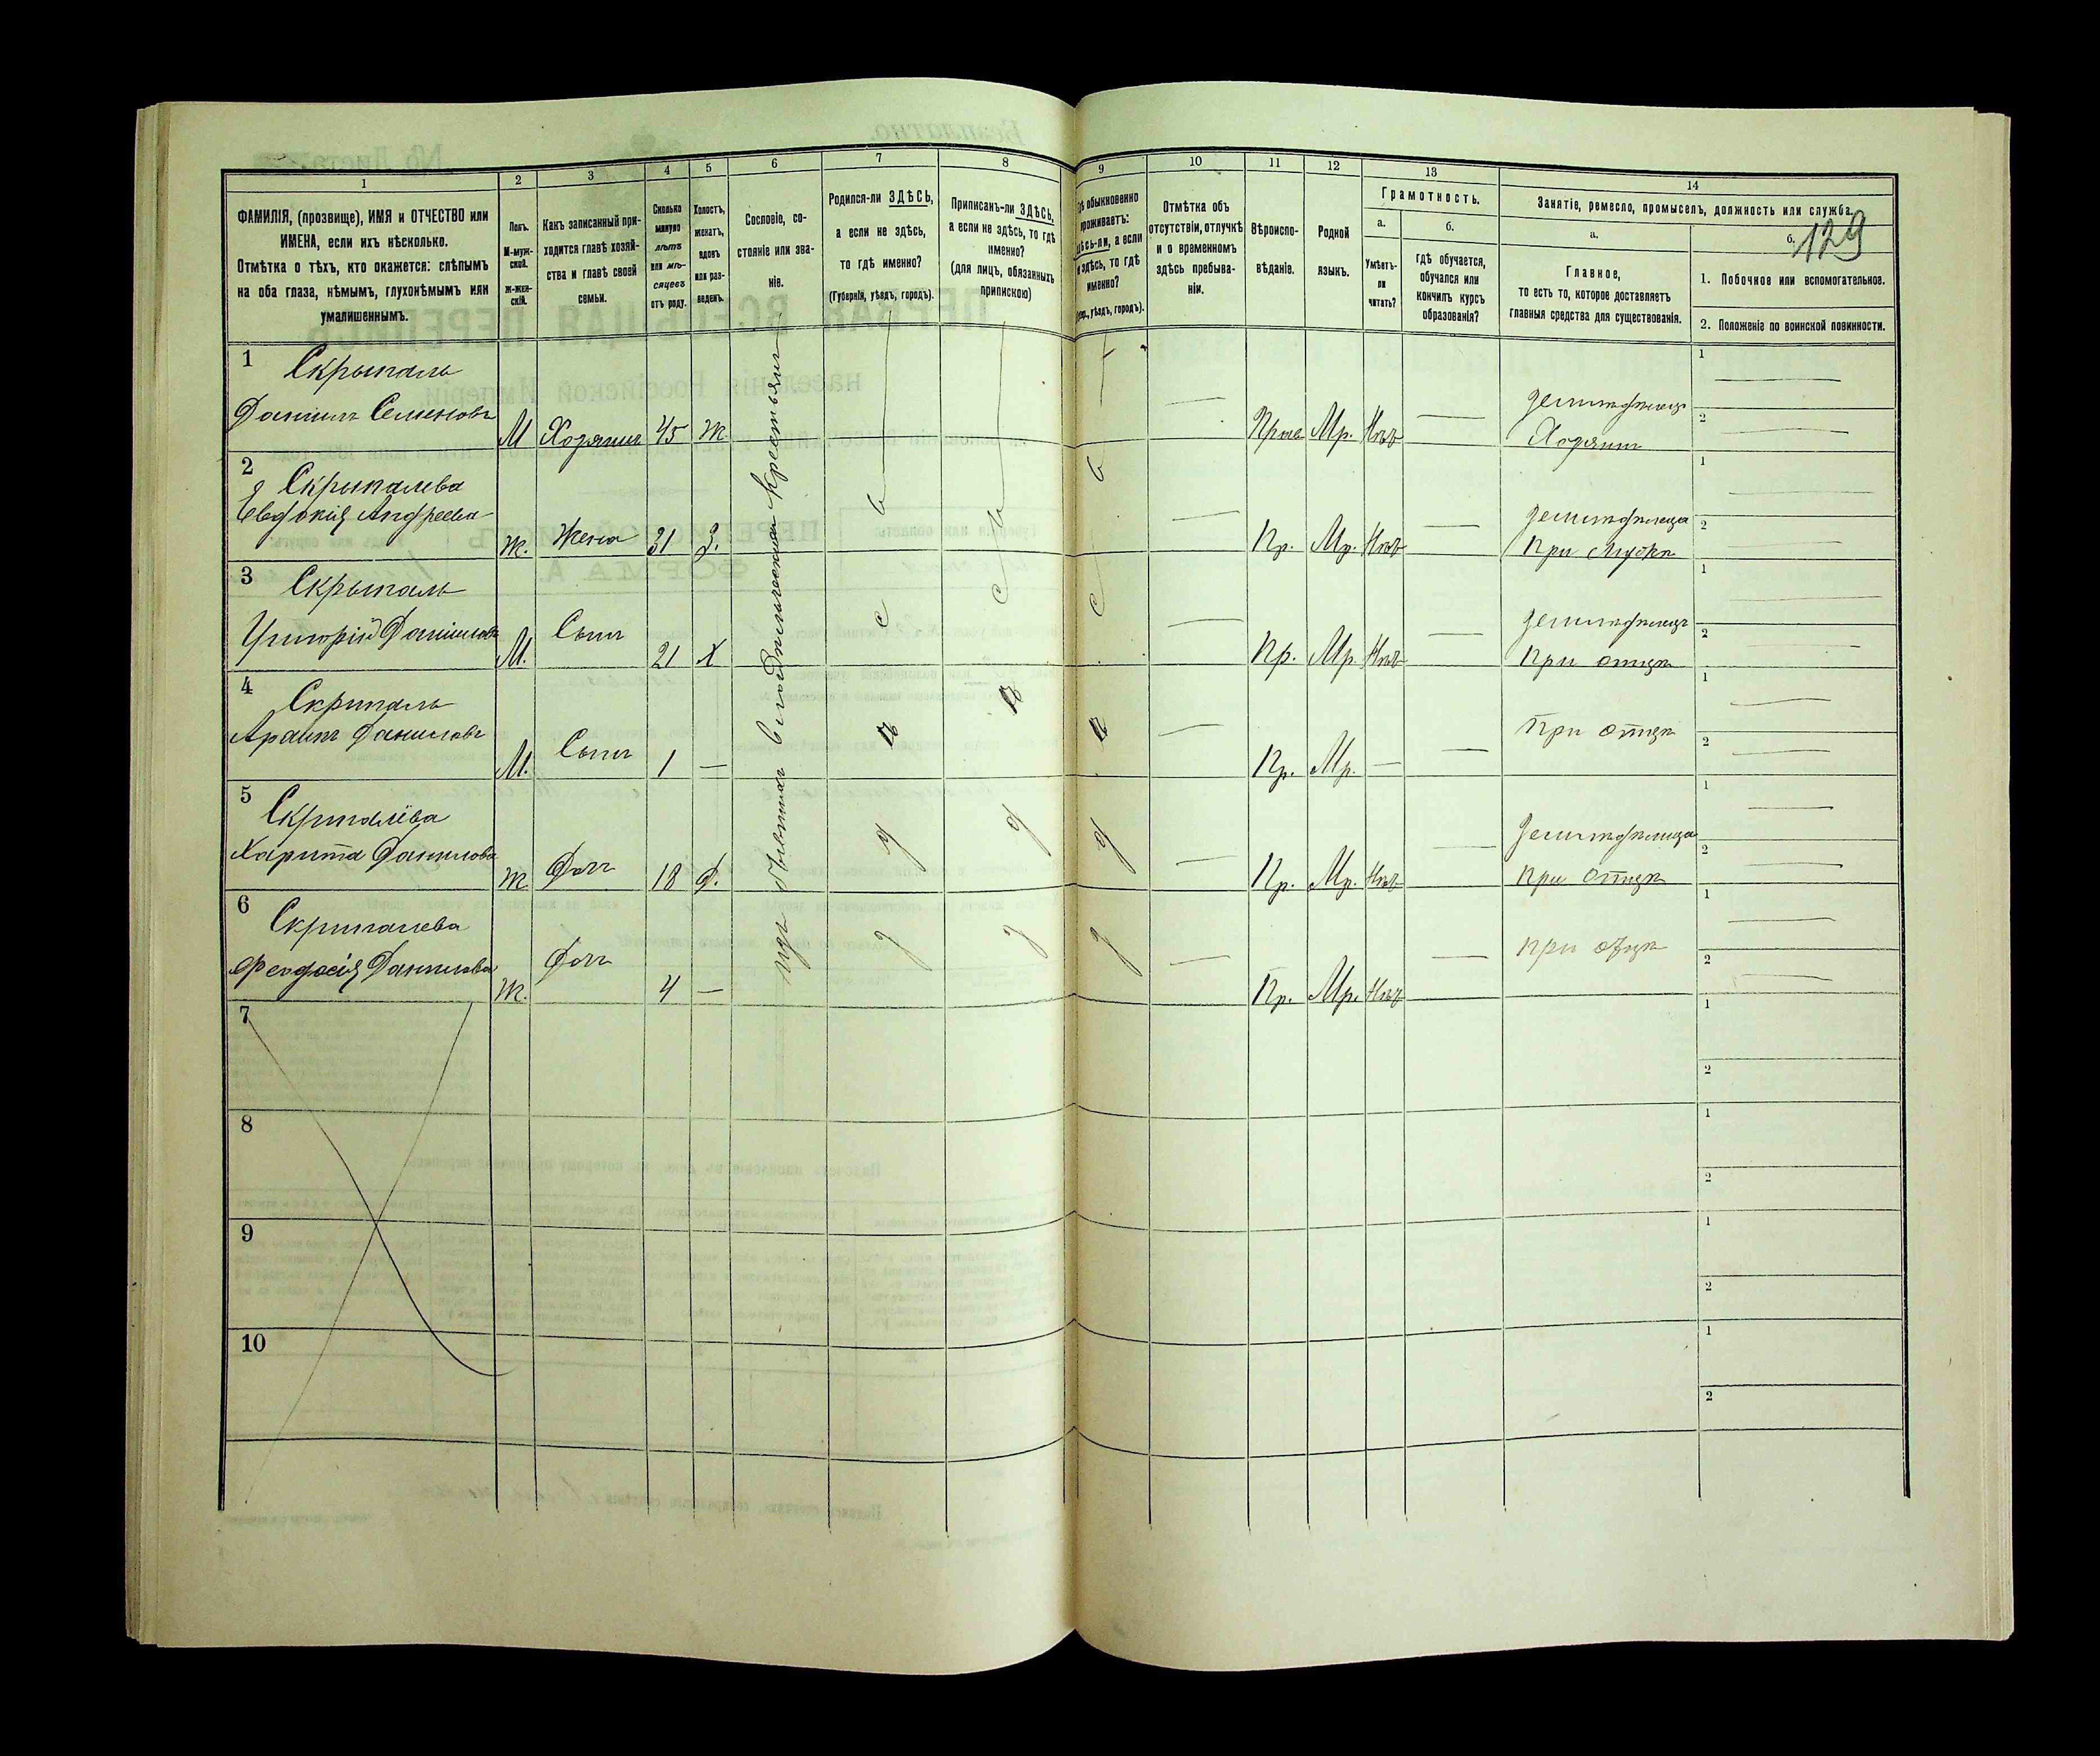 1
2
3
4
5
6
7
8
9
10
11
12
13
14
ФАМИЛІЯ, (прозвище), ИМЯ и ОТЧЕСТВО или
ИМЕНА, если ихъ нѣсколько.
Отмѣтка о тѣхъ, кто окажется: слѣпымъ
на оба глаза, нѣмымъ, глухонѣмымъ или
умалишеннымъ.
Полъ.
М-муж-
ской.
Ж-жен-
скій.
Какъ записанный при-
ходится главѣ хозяй-
ства и главѣ своей
семьи.
Сколько
минуло
лѣтъ
или мѣ-
сяцевъ
отъ роду.
Холостъ,
женатъ,
вдовъ
или раз-
веденъ.
Сословіе, со-
стояніе или зва-
ніе.
Родился-ли ЗДѢСЬ,
а если не здѣсь,
то гдѣ именно?
(Губернія, уѣздъ, городъ).
Приписанъ-ли ЗДѢСЬ,
а если не здѣсь, то гдѣ
именно?
(для лицъ, обязанныхъ
припискою)
обыкновенно
проживаетъ:
здѣсь-ли, а если
не здѣсь, то гдѣ
именно?
уѣздъ, городъ).
Отмѣтка объ
отсутствіи, отлучкѣ
и о временномъ
здѣсь пребыва-
ніи.
Вѣроиспо-
вѣданіе.
Родной
языкъ.
Грамотность.
а.
Умѣетъ-
ли
читать?
б.
гдѣ обучается,
обучался или
кончилъ курсъ
образованія?
Занятіе, ремесло, промыселъ, должность или служба.
129
а.
Главное,
то есть то, которое доставляетъ
главныя средства для существованія.
б.
1. Побочное или вспомогательное.
2. Положеніе по воинской повинности.
изъ бывшихъ владѣльческихъ крестьянъ
1
Скрыпаль
Даніилъ Семеновъ
М Хозяинъ 45 Ж
Прав. Мр. Нѣт
земледѣлецъ
Хозяинъ
1
2
2
Скрыпалева
Евдокія Андреева
Ж. Жена 31 З.
Пр. Мр. Нѣт
земледѣлица
при мужѣ
1
2
3
Скрыпаль
Григорій Даніиловъ
М. Сынъ 21 Х
Пр. Мр. Нѣт
земледѣлецъ
при отцѣ
1
2
4
Скрипаль
Данилавъ
М. Сынъ 1 —
Пр. Мр. —
При отцѣ
1
2
5
Скрипалева
Харита Данилова
Ж. Доч 18 Д.
Пр. Мр. Нѣт
земледѣлица
при отцѣ
1
2
6
Скрипалева
Феодосія Данилова
Ж. Доч 4 —
Пр. Мр. Нѣт
при отцѣ
1
2
здѣсь
здѣсь
здѣсь
7
1
2
8
1
2
9
1
2
10
1
2